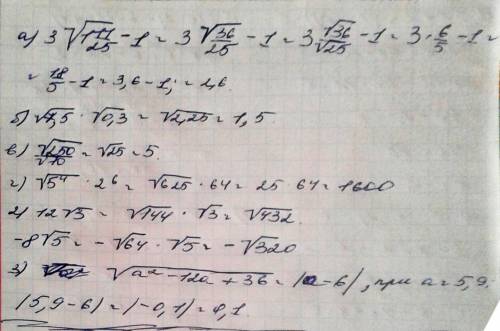 а) 3 √(1 11/25) - 1 = 3 √(36/25) - 1 = 3 √36/√25 - 1 = 3 · 6/5 - 1 =
= 18/5 - 1 = 3,6 - 1, = 2,6.
б) √7,5 · √0,3 = √2,25 = 1,5.
в) √250/√10 = √25 = 5.
г) √5⁴ · 2⁶ = √625 · 64 = 25 · 64 = 1600
2) 12√3 = √144 · √3 = √432.
-8√5 = -√64 · √5 = -√320
3) √a² - 12a + 36 = |a - 6|, при a = 5,9.
|5,9 - 6| = |-0,1| = 0,1.